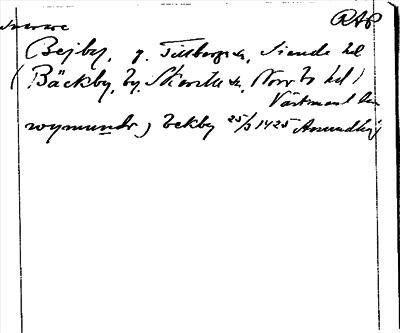 RAP
Bejby, g. Tillberga sn, Siende hd
(Bäckby, by, Skerike sn, Norrbo hd)
Västmanl. län
wymundr) Bekby 25/3 1425